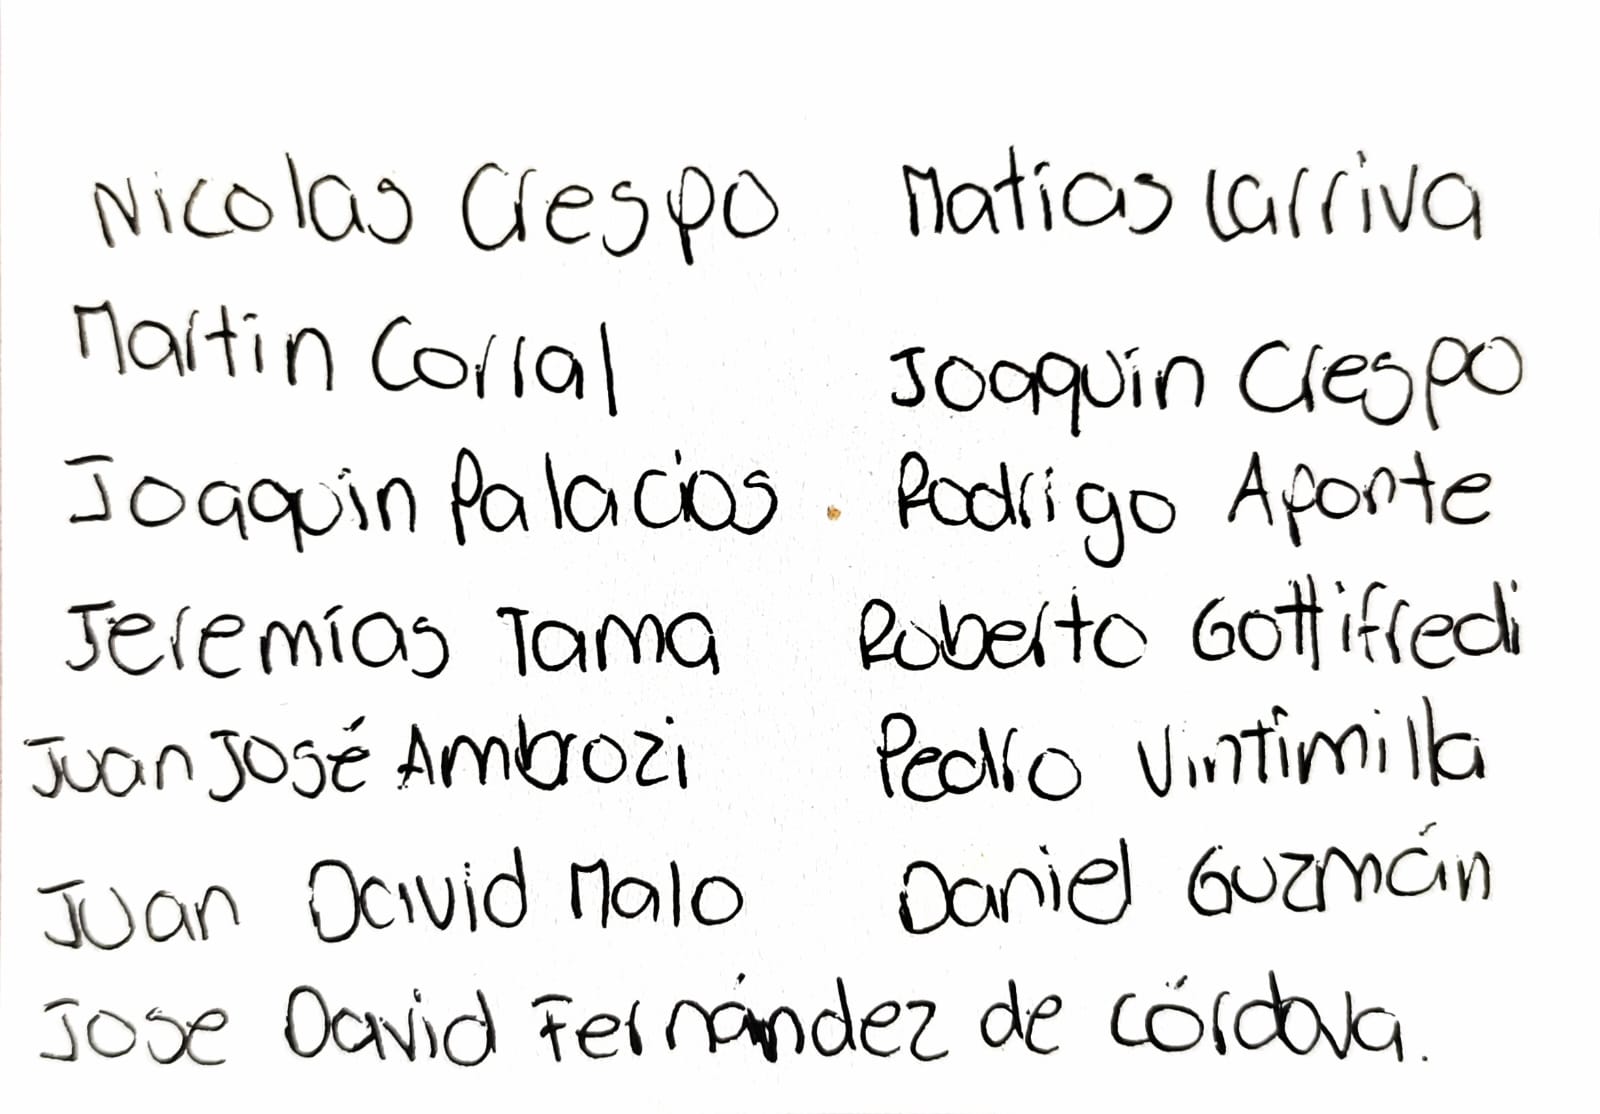 Nicolas Crespo Matias Larriva
Martin Corral Joaquin Crespo
Joaquin Palacios Rodrigo Aponte
Jeremías Tama Roberto Gottifredi
Juan José Ambrozi Pedro Vintimilla
Juan David Malo Daniel Guzmán
Jose David Fernández de Córdova.